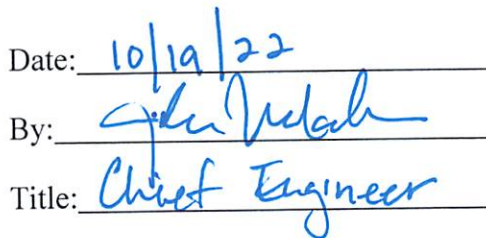 Date: 10/19/22
By:
Title: Chief Engineer